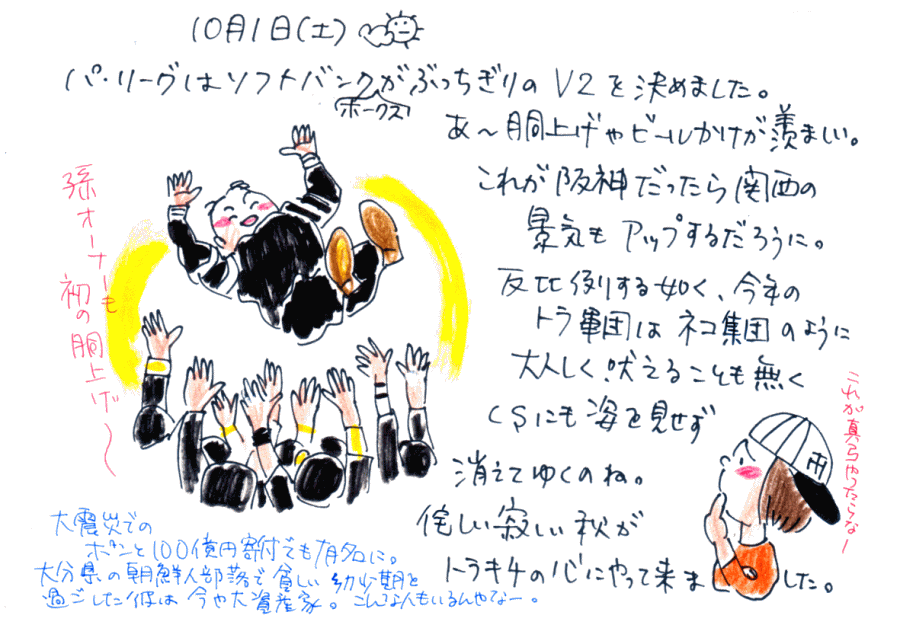 10月1日(土)
パ・リーグはソフトバンクがぶっちぎりの V2 を決めました。
ホークス
あ～胴上げやビールかけが羨ましい。
これが阪神だったら関西の
景気もアップするだろうに。
反比例する如く、今年の
トラ軍団はネコ集団のように
大人しく、吠えることも無く
CSにも姿を見せず
消えてゆくのね。
侘しい寂しい秋が
トラキチの心にやって来ました。
孫オーナーも
初の胴上げ～
これが真弓やったらなー
大震災での
ポンと100億円寄付でも有名に。
大分県の朝鮮人部落で貧しい幼少期を
過ごした彼は今や大資産家。こんな人もいるんやなー。